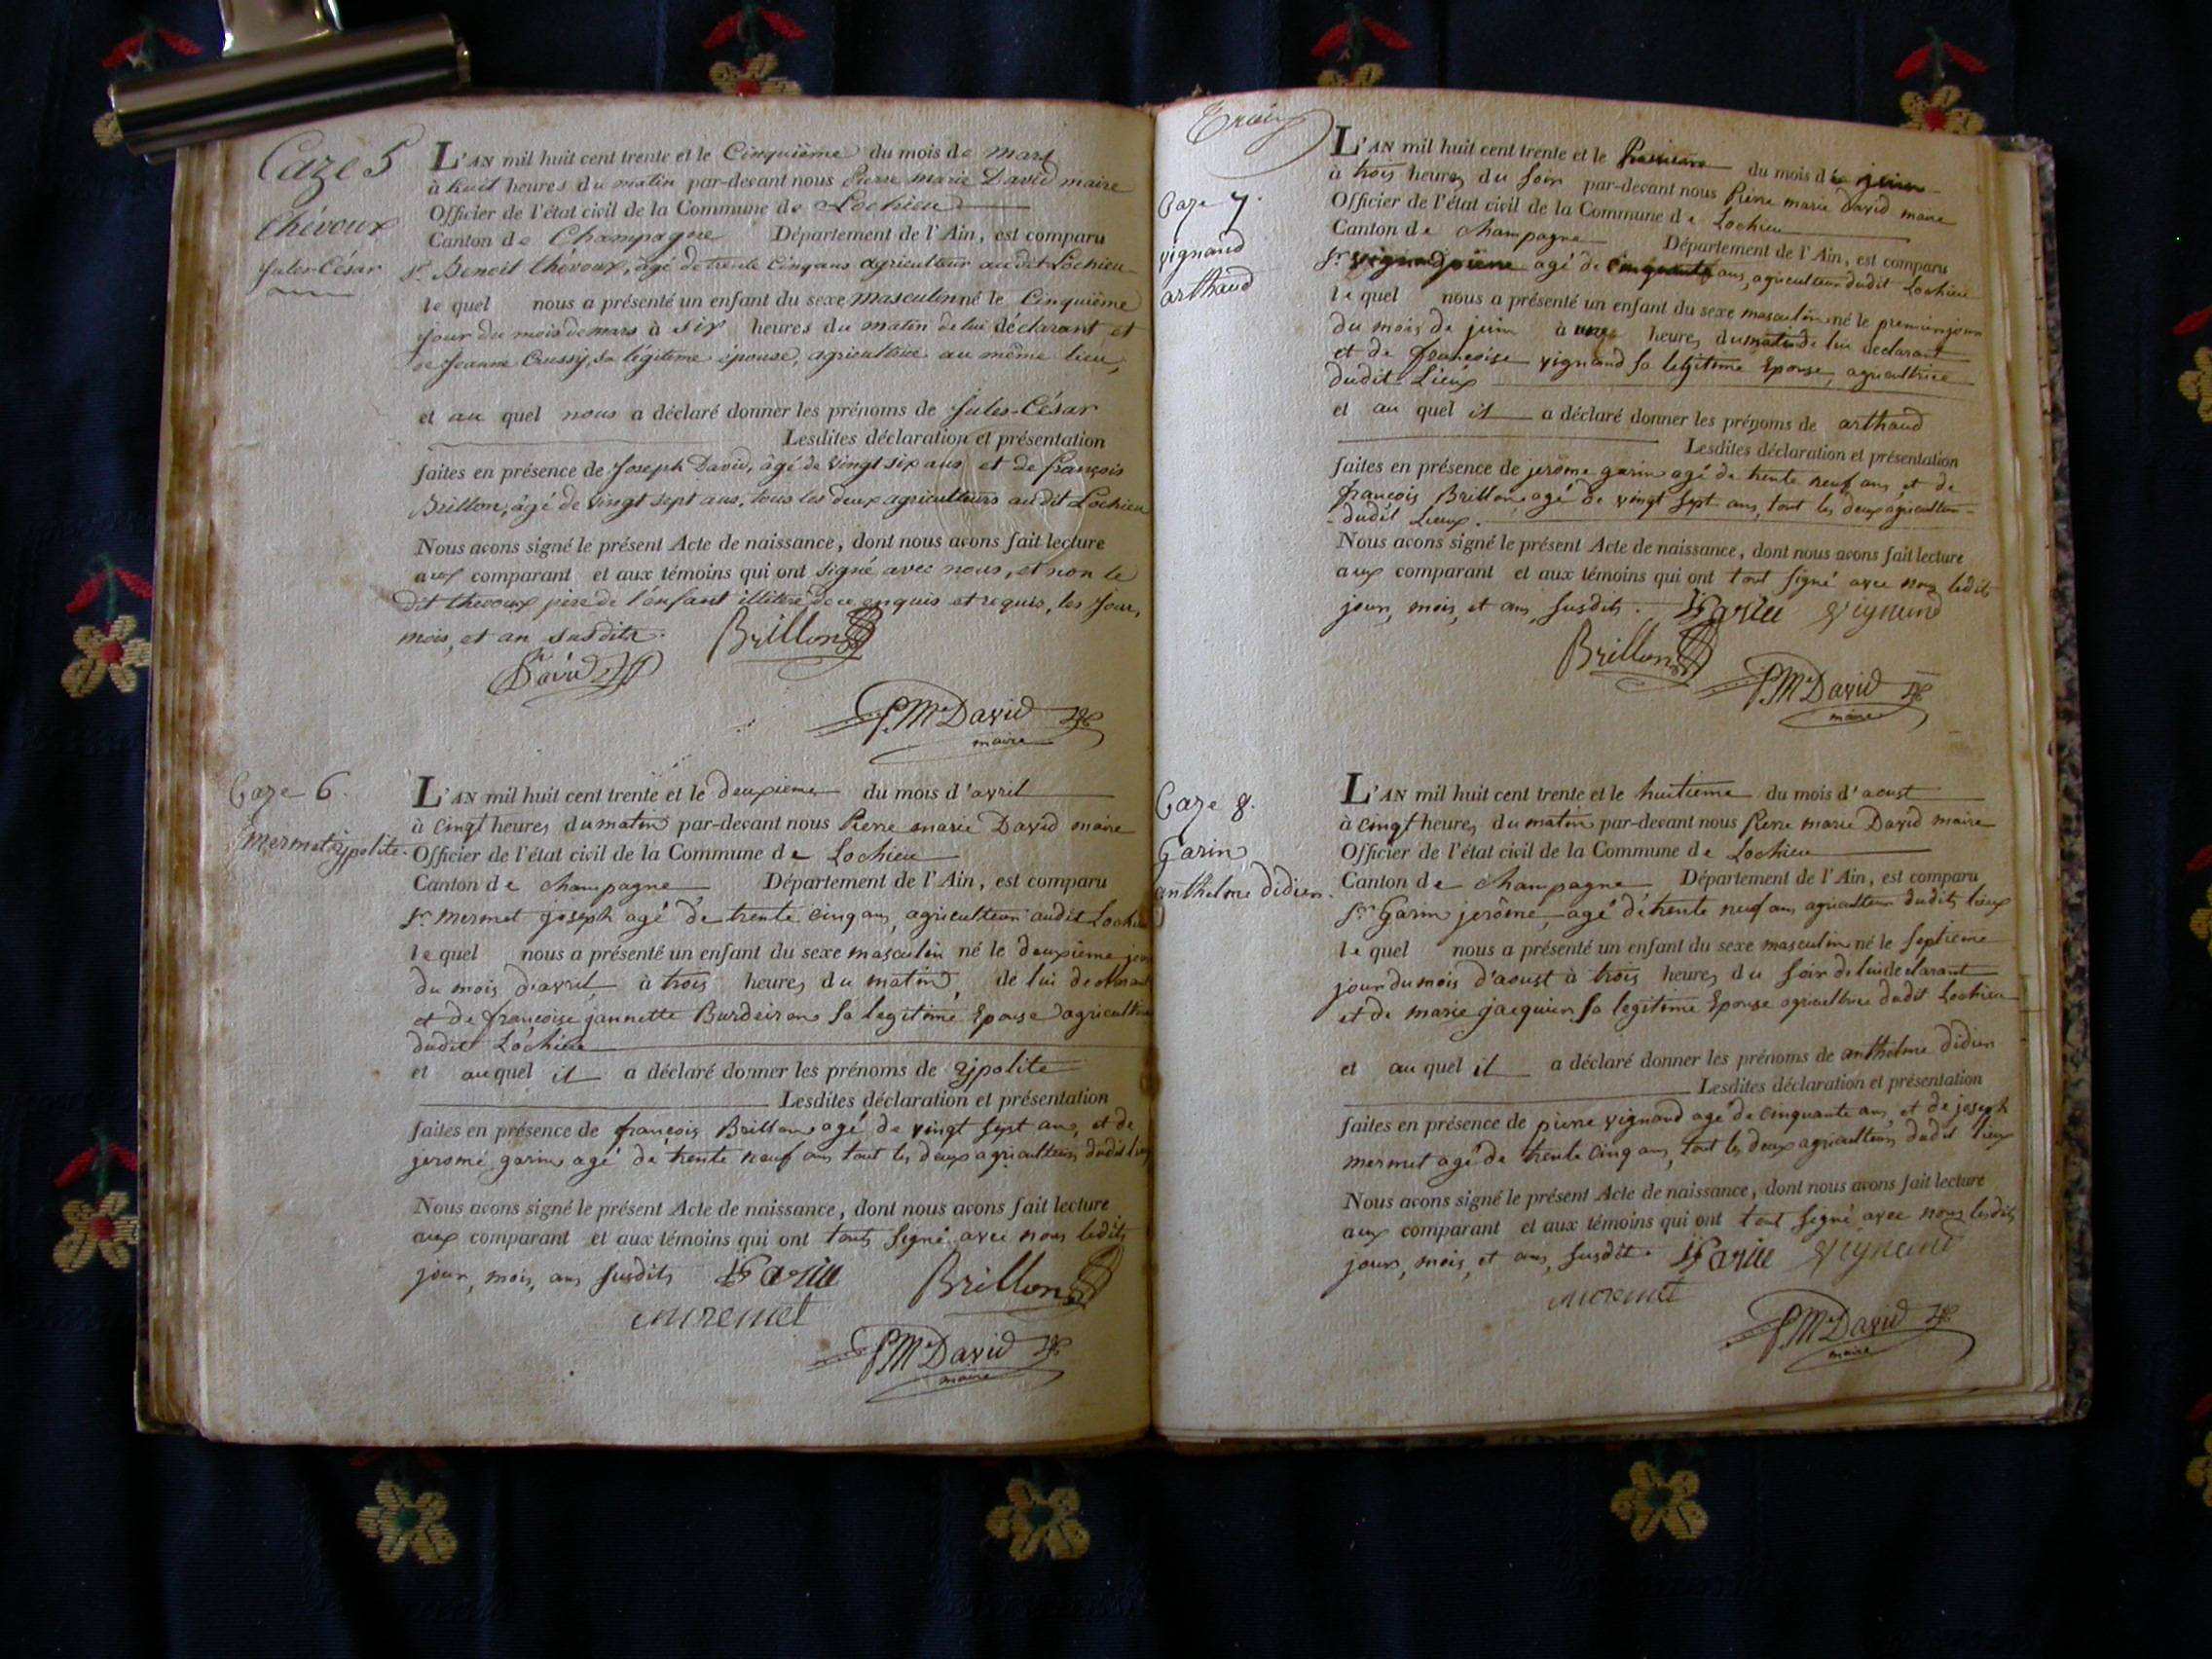 Caze 5
Chévoux
Jules-César
L'AN mil huit cent trente et le Cinquième du mois de mars
à huit heures du matin par-devant nous Pierre marie David maire
Officier de l'état civil de la Commune de Lochieu
Canton de Champagne Département de l'Ain, est comparu
Sr. Benoit Chévoux, âgé de trente Cinq ans agriculteur au dit Lochieu
le quel nous a présenté un enfant du sexe masculin né le Cinquième
jour du mois de mars à six heures du matin de lui déclarant et
de Jeanne Crussy, sa légitime épouse, agricultrice au même lieu,
et au quel nous a déclaré donner les prénoms de Jules-César
Lesdites déclaration et présentation
faites en présence de Joseph David, âgé de vingt six ans et de françois
Brillon, âgé de vingt sept ans, tous les deux agriculteurs au dit Lochieu
Nous avons signé le présent Acte de naissance, dont nous avons fait lecture
aux comparant et aux témoins qui ont signé avec nous, et non le
dit Chévoux père de l'enfant illitéré de ce enquis et requis, les jour,
mois, et an susdits.
Brillon
David
P Me David
maire
Caze 6.
mermet ypolite.
L'AN mil huit cent trente et le deuxieme du mois d'avril
à cinqt heures du matin par-devant nous Pierre marie David maire
Officier de l'état civil de la Commune de Lochieu
Canton de champagne Département de l'Ain, est comparu
Sr. mermet joseph agé de trente cinq ans, agriculteur audit Lochieu
le quel nous a présenté un enfant du sexe masculin né le deuxieme jour
du mois d'avril à trois heures du matin, de lui declarant
et de françoise jannette Burdeiron sa legitime Epouse agricultrice
dudit Lochieu
et au quel il a déclaré donner les prénoms de ypolite
Lesdites déclaration et présentation
faites en présence de françois Brillon agé de vingt sept ans, et de
jeromé garin agé de trente neuf ans tout les deux agriculteurs dudit lieux
Nous avons signé le présent Acte de naissance, dont nous avons fait lecture
aux comparant et aux témoins qui ont touts signé avec nous ledits
jour, mois, ans susdits
Brillon
P Me David
maire
Caze 7.
vignand
arthaud
L'AN mil huit cent trente et le Premier du mois de juin
à trois heures du soir par-devant nous Pierre marie David maire
Officier de l'état civil de la Commune de Lochieu
Canton de champagne Département de l'Ain, est comparu
Sr. agé de cinquante ans, agriculteur dudit Lochieu
le quel nous a présenté un enfant du sexe masculin né le premier jour
du mois de juin à une heures du matin de lui declarant
et de françoise vignand sa legitime Epouse, agricultrice
dudit Lieux
et au quel il a déclaré donner les prénoms de arthaud
Lesdites déclaration et présentation
faites en présence de jerôme garin agé de trente neuf ans, et de
françois Brillon agé de vingt sept ans, tout les deux agriculteurs
dudit Lieux.
Nous avons signé le présent Acte de naissance, dont nous avons fait lecture
aux comparant et aux témoins qui ont tout signé avec nous ledits
jour, mois, et ans, susdits.
Brillon
P Me David
maire
Caze 8.
Garin
anthelme didier.
L'AN mil huit cent trente et le huitieme du mois d'aoust
à cinqt heures du matin par-devant nous Pierre marie David maire
Officier de l'état civil de la Commune de Lochieu
Canton de champagne Département de l'Ain, est comparu
Sr. Garin jerôme, agé de trente neuf ans agriculteur dudits lieux
le quel nous a présenté un enfant du sexe masculin né le septieme
jour du mois d'aoust à trois heures du soir de lui declarant
et de marie jacquier sa legitime Epouse agricultrice dudit Lochieu
et au quel il a déclaré donner les prénoms de anthelme didier
Lesdites déclaration et présentation
faites en présence de pierre vignand agé de cinquante ans, et de joseph
mermet agé de trente cinq ans, tout les deux agriculteurs dudit lieux
Nous avons signé le présent Acte de naissance, dont nous avons fait lecture
aux comparant et aux témoins qui ont tout signé avec nous lesdits
jours, mois, et ans, susdit.
P Me David
maire